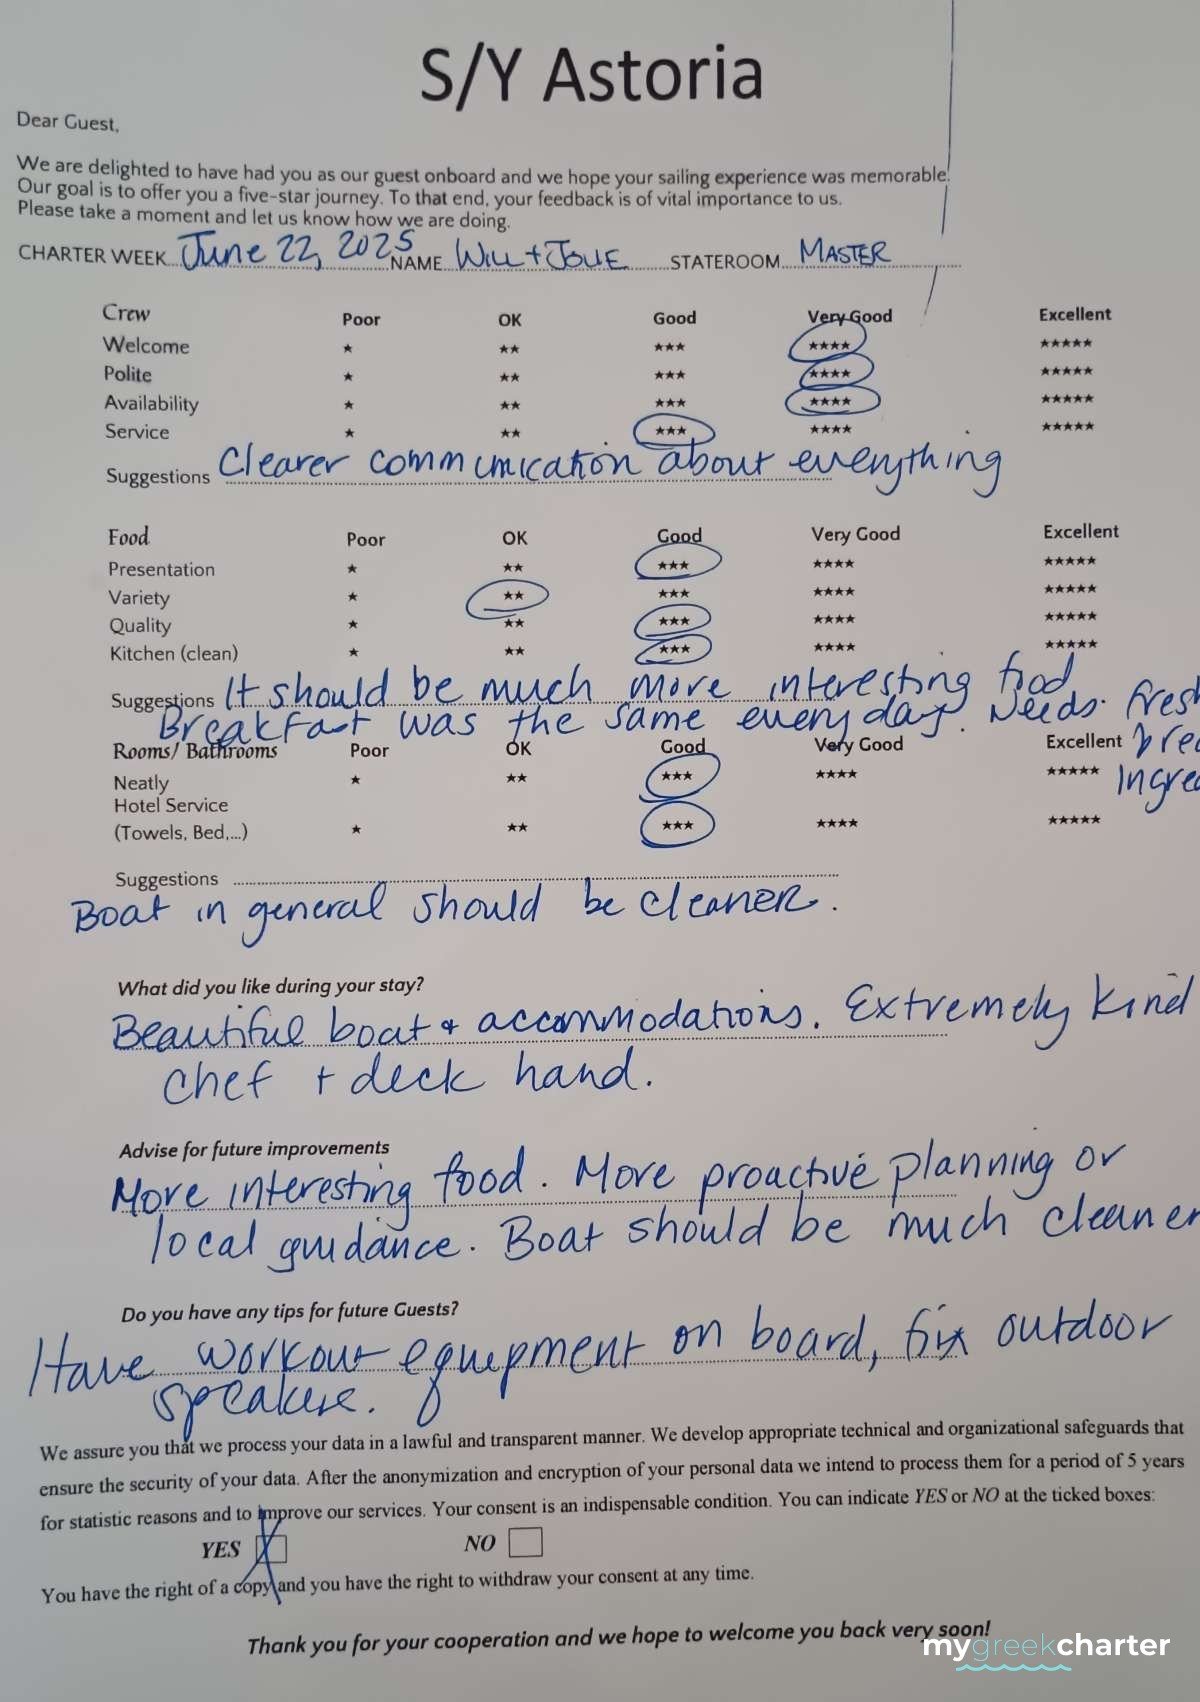 S/Y Astoria
Dear Guest,
We are delighted to have had you as our guest onboard and we hope your sailing experience was memorable!
Our goal is to offer you a five-star journey. To that end, your feedback is of vital importance to us.
Please take a moment and let us know how we are doing.
CHARTER WEEK June 22, 2025 NAME Will + Jolie STATEROOM MASTER
Crew Poor OK Good Very Good Excellent
Welcome ★ ★★ ★★★ ★★★★ ★★★★★
Polite ★ ★★ ★★★ ★★★★ ★★★★★
Availability ★ ★★ ★★★ ★★★★ ★★★★★
Service ★ ★★ ★★★ ★★★★ ★★★★★
Suggestions Clearer communication about everything
Food Poor OK Good Very Good Excellent
Presentation ★ ★★ ★★★ ★★★★ ★★★★★
Variety ★ ★★ ★★★ ★★★★ ★★★★★
Quality ★ ★★ ★★★ ★★★★ ★★★★★
Kitchen (clean) ★ ★★ ★★★ ★★★★ ★★★★★
Suggestions It should be much more interesting food
Breakfast was the same every day. Needs fresh
Rooms/ Bathrooms Poor OK Good Very Good Excellent
Neatly ★ ★★ ★★★ ★★★★ ★★★★★
Hotel Service
(Towels, Bed,...) ★ ★★ ★★★ ★★★★ ★★★★★
Suggestions
Boat in general should be cleaner.
What did you like during your stay?
Beautiful boat + accommodations. Extremely kind
chef + deck hand.
Advise for future improvements
More interesting food. More proactive planning or
local guidance. Boat should be much cleaner
Do you have any tips for future Guests?
Have workout equipment on board, fix outdoor
speakers.
We assure you that we process your data in a lawful and transparent manner. We develop appropriate technical and organizational safeguards that
ensure the security of your data. After the anonymization and encryption of your personal data we intend to process them for a period of 5 years
for statistic reasons and to improve our services. Your consent is an indispensable condition. You can indicate YES or NO at the ticked boxes:
YES X NO
You have the right of a copy and you have the right to withdraw your consent at any time.
Thank you for your cooperation and we hope to welcome you back very soon!
mygreekcharter